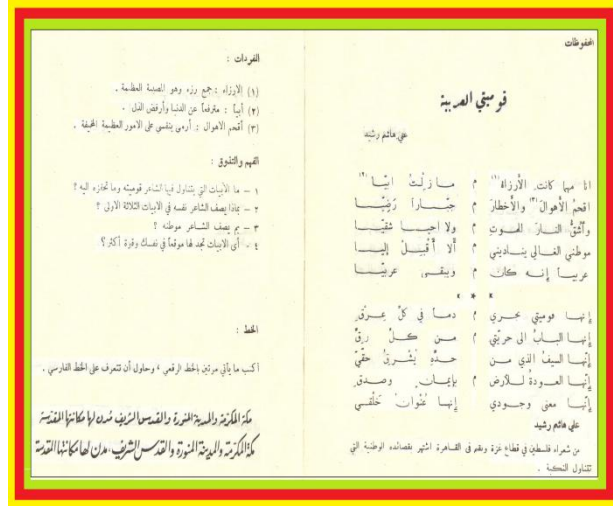 المحفوظات
قوميتي العربية
علي هاشم رشيد
انا مهما كانت الأرزاء (١) م ما زلتُ ابيّا (٢)
اقحمُ الأهوالَ (٣) والأخطارَ م جبّاراً
وأشقُّ النار للموت م ولا احيا شقيّا
موطني الغالي يناديني م ألا أقبل إليا
عربياً إنه كان م ويبقى عربيّا
* * *
إنها قوميتي تجري م دماً في كلّ عرقِ
إنها البابُ الى حريّتي م من كلّ رقِّ
إنّها السيفُ الذي من م حدّهِ يُشرقُ حقّي
إنّها العودة للأرض م بإيمان وصدقِ
إنّها معنى وجودي م إنها عُنوان خَلْقي
علي هاشم رشيد
من شعراء فلسطين في قطاع غزة ويقيم في القاهرة اشتهر بقصائده الوطنية التي
تتناول النكبة .
المفردات :
(١) الارزاء : جمع رزء وهو المصيبة العظيمة .
(٢) أبياً : مترفعاً عن الدنيا وأرفض الذل .
(٣) أقحم الاهوال : أرمي بنفسي على الامور العظيمة المخيفة .
الفهم والتذوق :
١ – ما الأبيات التي يتناول فيها الشاعر قوميته وما تحفزه اليه ؟
٢ – بماذا يصف الشاعر نفسه في الابيات الثلاثة الاولى ؟
٣ – بم يصف الشاعر موطنه ؟
٤ . أي الابيات تجد لها موقعاً في نفسك وقوة أكثر ؟
الخط :
اكتب ما يأتي مرتين بالخط الرقعي ، وحاول أن تتعرف على الخط الفارسي .
مكة المكرمة والمدينة المنورة والقدس الشريف مدن لها مكانتها المقدسة
مكة المكرّمة والمدينة المنورة والقدس الشريف، مدن لها مكانتها المقدسة